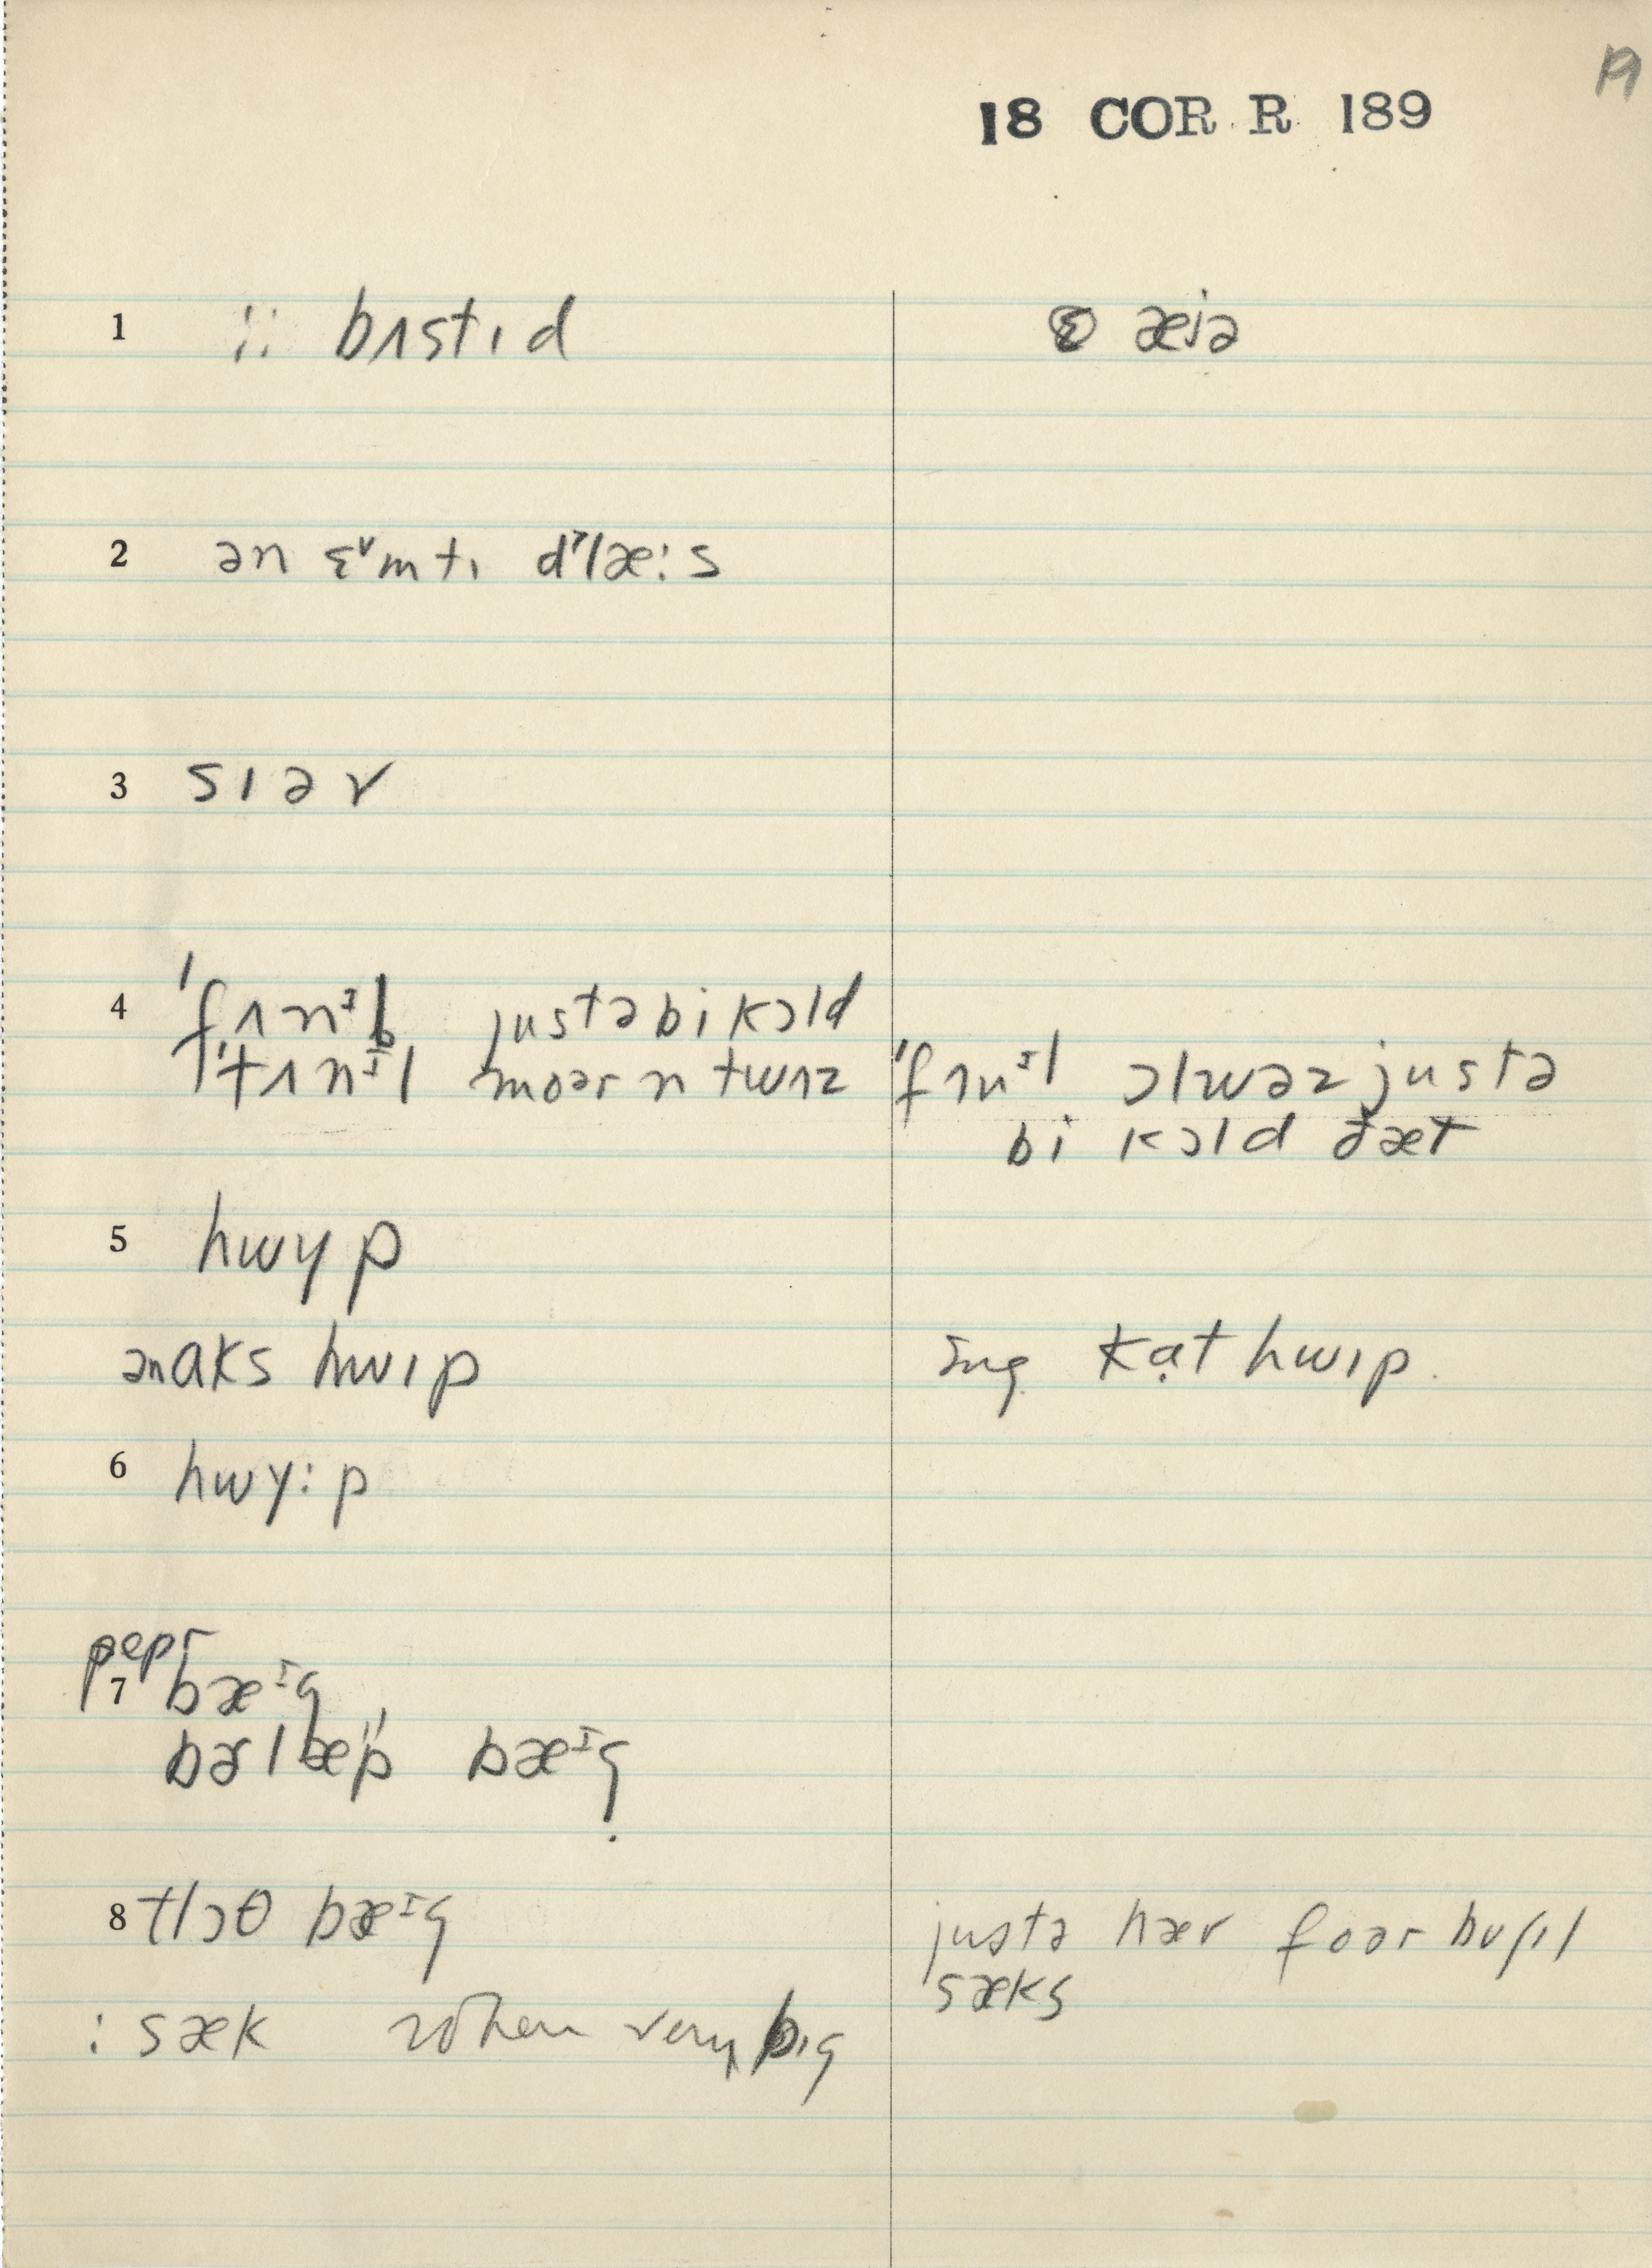 19
18 COR R 189
1 ;: bʌstɪd
æiə
2 ən ɛ˅mtɪ d˺læ:s
3 sɪəv
4 'fʌnᶦl justəbikɔld
'tʌnᶦl moər n twʌz
'fʌnᶦl ɔlwəz justə
bi kɔld ðæt
5 hwyp
ənaks hwɪp
kat hwɪp.
6 hwy:p
pepr
7 bæᶦg
bərlæp bæᶦg
8 tlɔθ bæᶦg
: sæk when very big
justə hæv foər buʃɪl
sæks